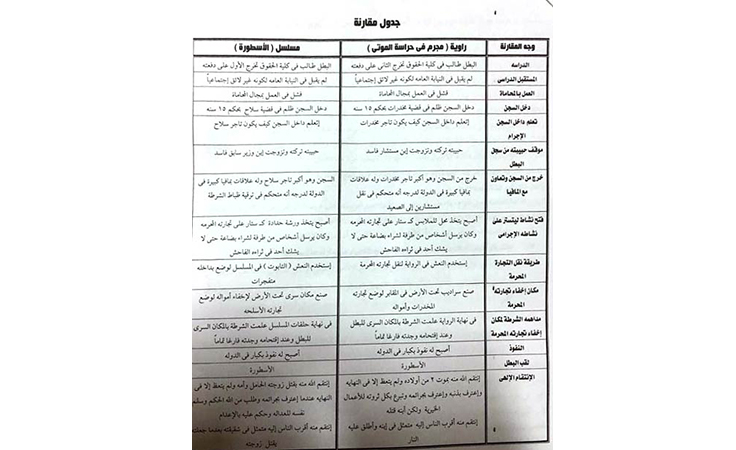 جدول مقارنة
وجه المقارنة	رواية ( مجرم فى حراسة الموتى )	مسلسل ( الأسطورة )
الدراسه	البطل طالب فى كلية الحقوق تخرج الثانى على دفعته	البطل طالب فى كلية الحقوق تخرج الأول على دفعته
المستقبل الدراسى	لم يقبل فى النيابة العامه لكونه غير لائق إجتماعياً	لم يقبل فى النيابة العامه لكونه غير لائق إجتماعياً
العمل بالمحاماة	فشل فى العمل بمجال المحاماة	فشل فى العمل بمجال المحاماة
دخل السجن	دخل السجن ظلم فى قضية مخدرات بحكم ١٥ سنه	دخل السجن ظلم فى قضية سلاح بحكم ١٥ سنه
تعلم داخل السجن	إتعلم داخل السجن كيف يكون تاجر مخدرات	إتعلم داخل السجن كيف يكون تاجر سلاح
الإجرام
موقف حبيبته من سجل	حبيبته تركته وتزوجت إبن مستشار فاسد	حبيبته تركته وتزوجت إبن وزير سابق فاسد
البطل
خرج من السجن وتعاون	خرج من السجن وهو أكبر تاجر مخدرات وله علاقات	السجن وهو أكبر تاجر سلاح وله علاقات بمافيا كبيرة فى
مع المافيا	بمافيا كبيرة فى الدولة لدرجه أنه متحكم فى نقل	الدولة لدرجه أنه متحكم فى ترقية ظباط الشرطة
مستشارين إلى الصعيد
فتح نشاط ليتستر على	أصبح يتخذ محل للملابس كـ ستار على تجارته المحرمه	أصبح يتخذ ورشة حدادة كـ ستار على تجارته المحرمه
نشاطه الإجرامى	وكان يرسل أشخاص من طرفة لشراء بضاعة حتى لا	وكان يرسل أشخاص من طرفة لشراء بضاعة حتى لا
يشك أحد فى ثراءه الفاحش	يشك أحد فى ثراءه الفاحش
طريقة نقل التجارة	إستخدم النعش فى الرواية لنقل تجارته المحرمة	إستخدم النعش ( التابوت ) فى المسلسل لوضع بداخله
المحرمة	متفجرات
مكان إخفاء تجارته	صنع سراديب تحت الأرض فى المقابر لوضع تجارته	صنع مكان سرى تحت الأرض لإخفاء أمواله لوضع
المحرمة	المخدرات وأمواله	تجارته الأسلحه
مداهمه الشرطة لمكان	فى نهاية الرواية علمت الشرطة بالمكان السرى للبطل	فى نهاية حلقات المسلسل علمت الشرطة بالمكان السرى
إخفاء تجارته المحرمة	وعند إقتحامه وجدته فارغا تماماً	للبطل وعند إقتحامه وجدته فارغا تماماً
النفوذ	أصبح له نفوذ بكبار فى الدوله	أصبح له نفوذ بكبار فى الدوله
لقب البطل	الأسطورة	الأسطورة
الإنتقام الإلهى	إنتقم الله منه بموت ٢ من أولاده ولم يتعظ إلا فى النهايه	إنتقم الله منه بقتل زوجته الحامل وأمه ولم يتعظ إلا فى
وإعترف بذنبه وإعترف بجرائمه وتبرع بكل ثروته للأعمال	النهايه عندما إعترف بجرائمه وطلب من الله الحكم وسلم
الخيرية ولكن أبنه قتله	نفسه للعداله وحكم عليه بالإعدام
إنتقم منه أقرب الناس إليه متمثل فى إبنه وأطلق عليه	إنتقم منه أقرب الناس إليه متمثل فى شقيقته بعدما جعلته
النار	يقتل زوجته